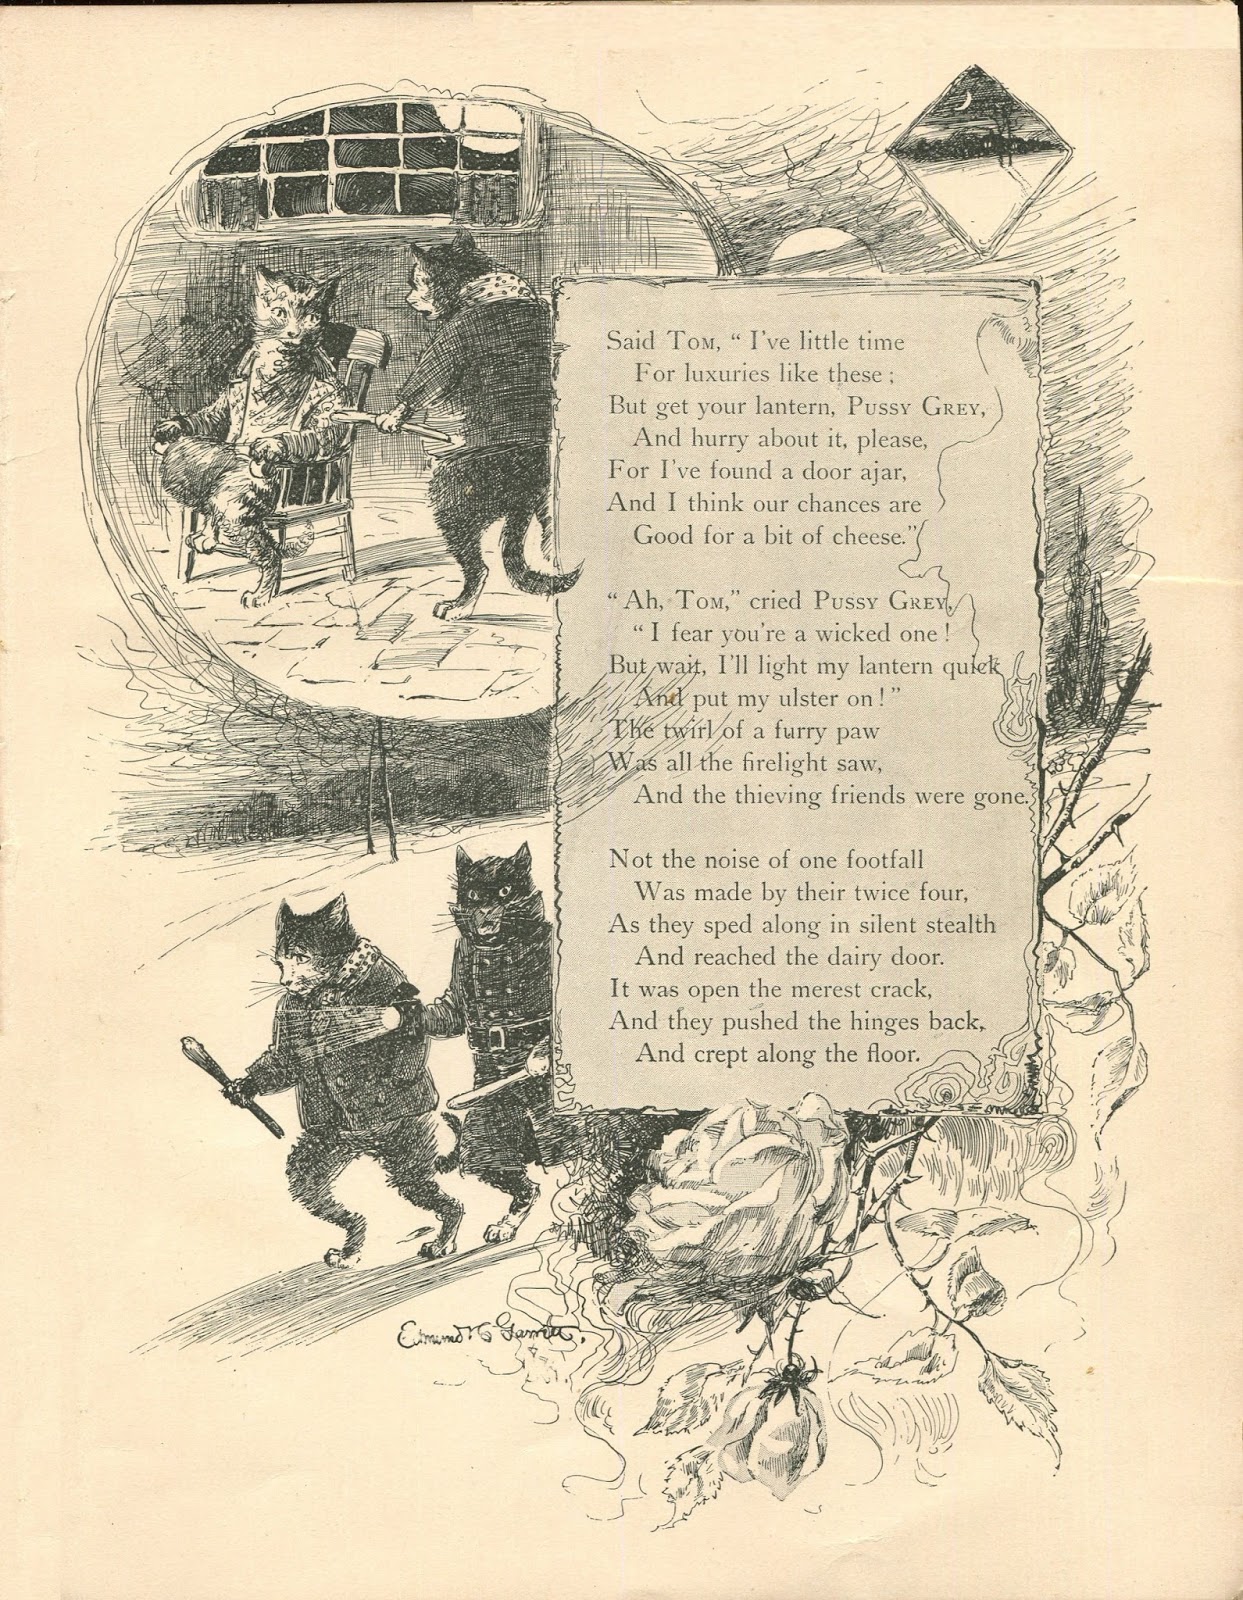 Said TOM, “ I've little time
For luxuries like these ;
But get your lantern, PUSSY GREY,
And hurry about it, please,
For I've found a door ajar,
And I think our chances are
Good for a bit of cheese.”
“ Ah, TOM,” cried PUSSY GREY,
“ I fear you're a wicked one !
But wait, I'll light my lantern quick
And put my ulster on ! ”
The twirl of a furry paw
Was all the firelight saw,
And the thieving friends were gone.
Not the noise of one footfall
Was made by their twice four,
As they sped along in silent stealth
And reached the dairy door.
It was open the merest crack,
And they pushed the hinges back,
And crept along the floor.
Edmund H Garrett.